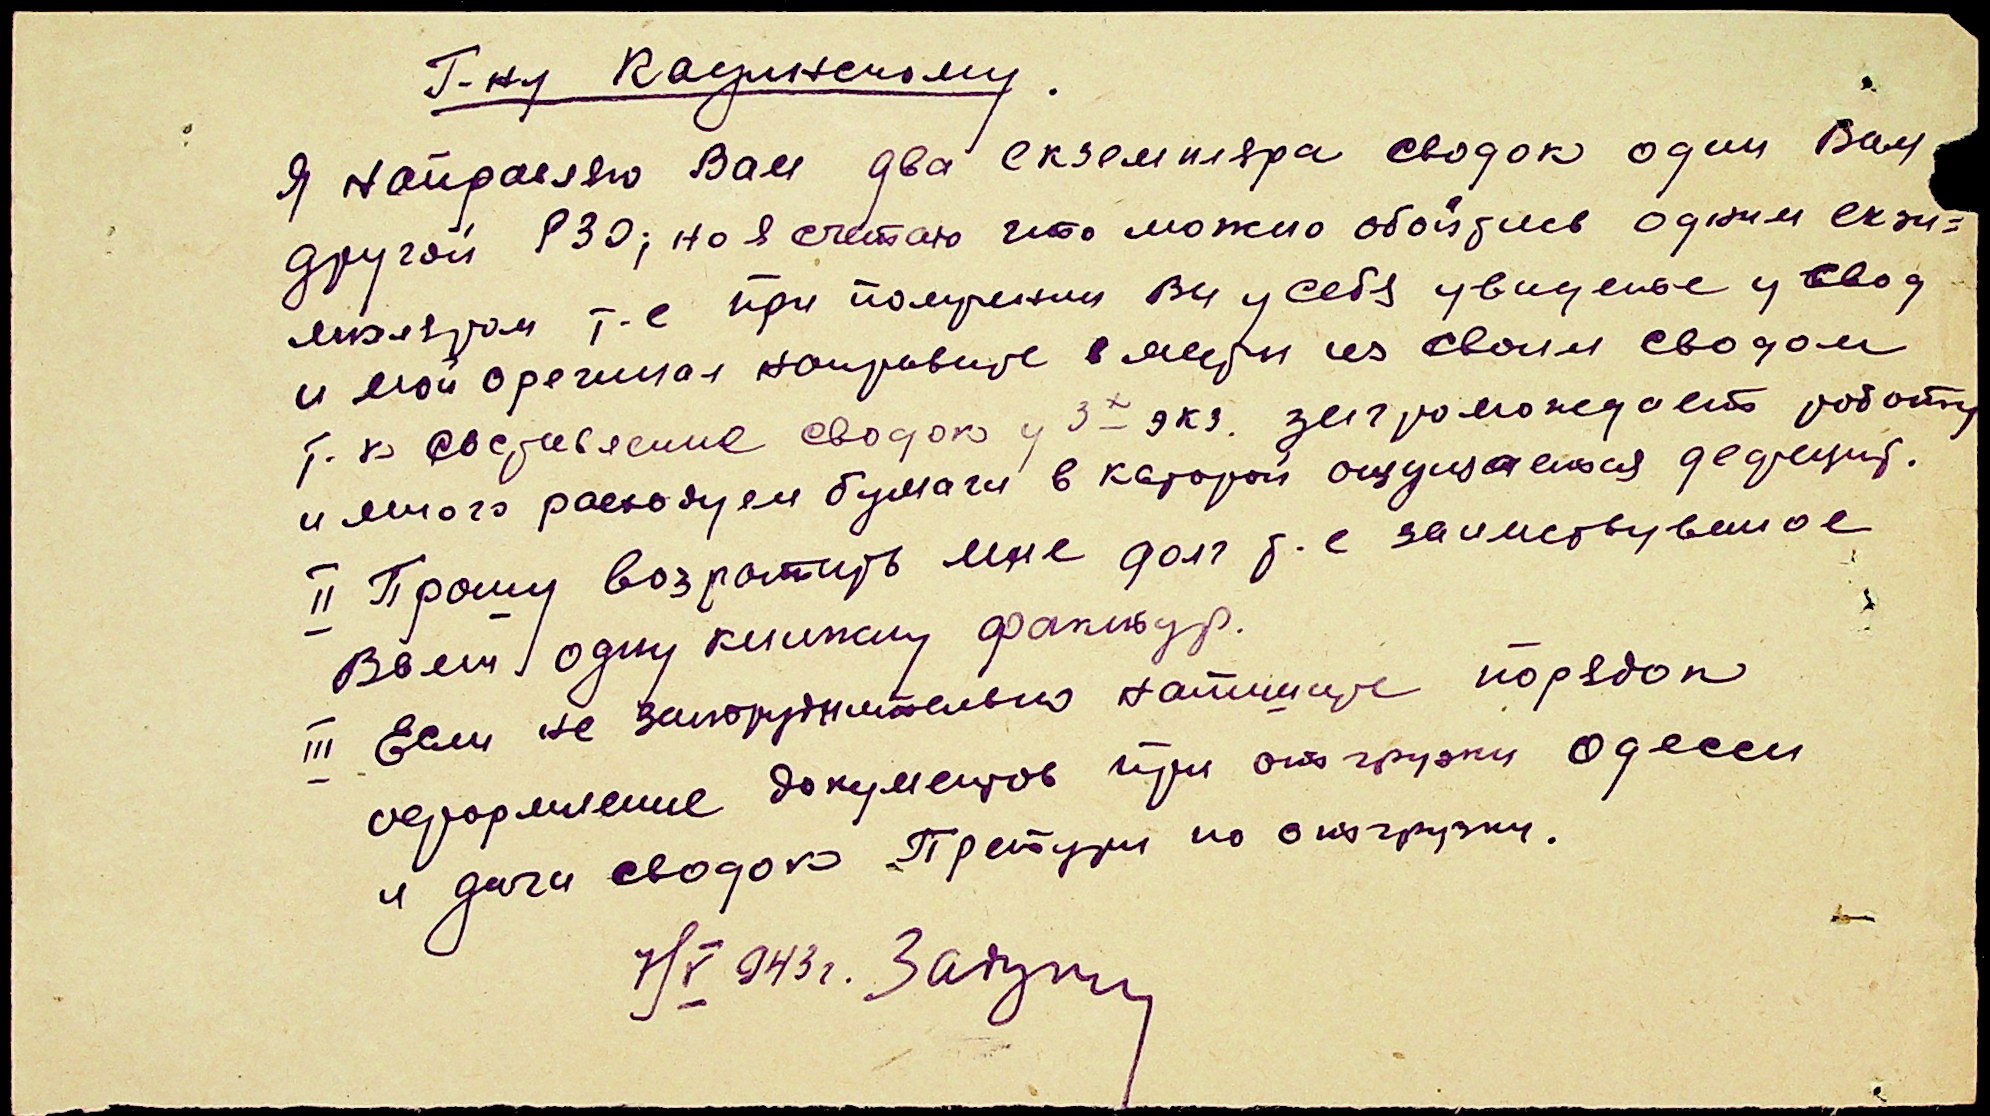 Г-ну Кадинскому.
Я направляю Вам два екземпляра сводок один Вам
другой РЗО; но я считаю что можно обойтись одним екзи=
мпляром т-е при получении Вы у себя увидете у свод
и мой орегинал направите вмести из своим сводом
т. к составление сводок у 3х экз. загромождает работу
и много расходуем бумаги в каторой ощущается дефицит.
II Прошу возратить мне долг т. е заимствуваное
Вами одну книжку фактур.
III Если не затруднительно напишите порядок
оформление документов при отгрузки Одесси
и дачи сводок Претури по отгрузки.
7/V 943 г.